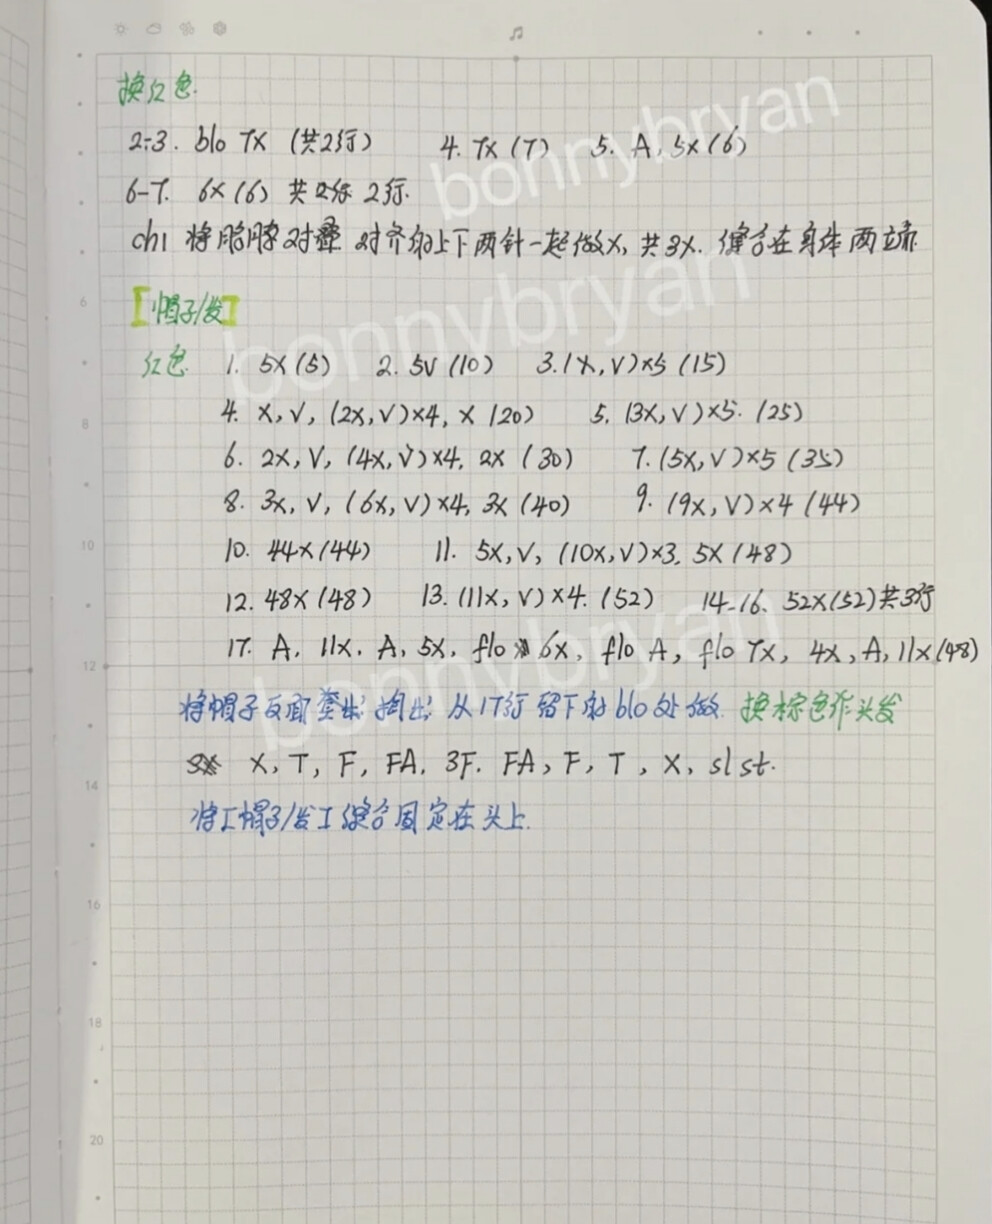 换红色.
2-3. blo 7X (共2行) 4. 7X (7) 5. A, 5X (6)
6-7. 6X (6) 共2行.
ch1 将胳膊对叠 对齐的上下两针一起做X, 共3X. 缝合在身体两端
[帽子/发]
红色 1. 5X (5) 2. 5V (10) 3. (X, V)×5 (15)
4. X, V, (2X, V)×4, X (20) 5. (3X, V)×5. (25)
6. 2X, V, (4X, V)×4, 2X (30) 7. (5X, V)×5 (35)
8. 3X, V, (6X, V)×4, 3X (40) 9. (9X, V)×4 (44)
10. 44X (44) 11. 5X, V, (10X, V)×3, 5X (48)
12. 48X (48) 13. (11X, V)×4. (52) 14-16. 52X (52) 共3行
17. A, 11X, A, 5X, flo 6X, flo A, flo 7X, 4X, A, 11X (48)
将帽子反面 掏出, 从17行留下的blo处做. 换棕色作头发
X, T, F, FA, 3F, FA, F, T, X, sl st.
将[帽子/发]缝合固定在头上.
bonnybryan
bonnybryan
bonnybryan
6
8
10
12
14
16
18
20